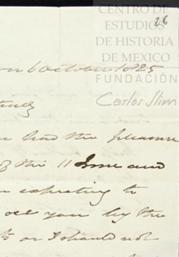 26
CENTRO DE
ESTUDIOS
DE HISTORIA
DE MEXICO
FUNDACIÓN
Carlos Slim
October 1835
had the pleasure
of the 11 June and
expecting to
see you by the
or I should not